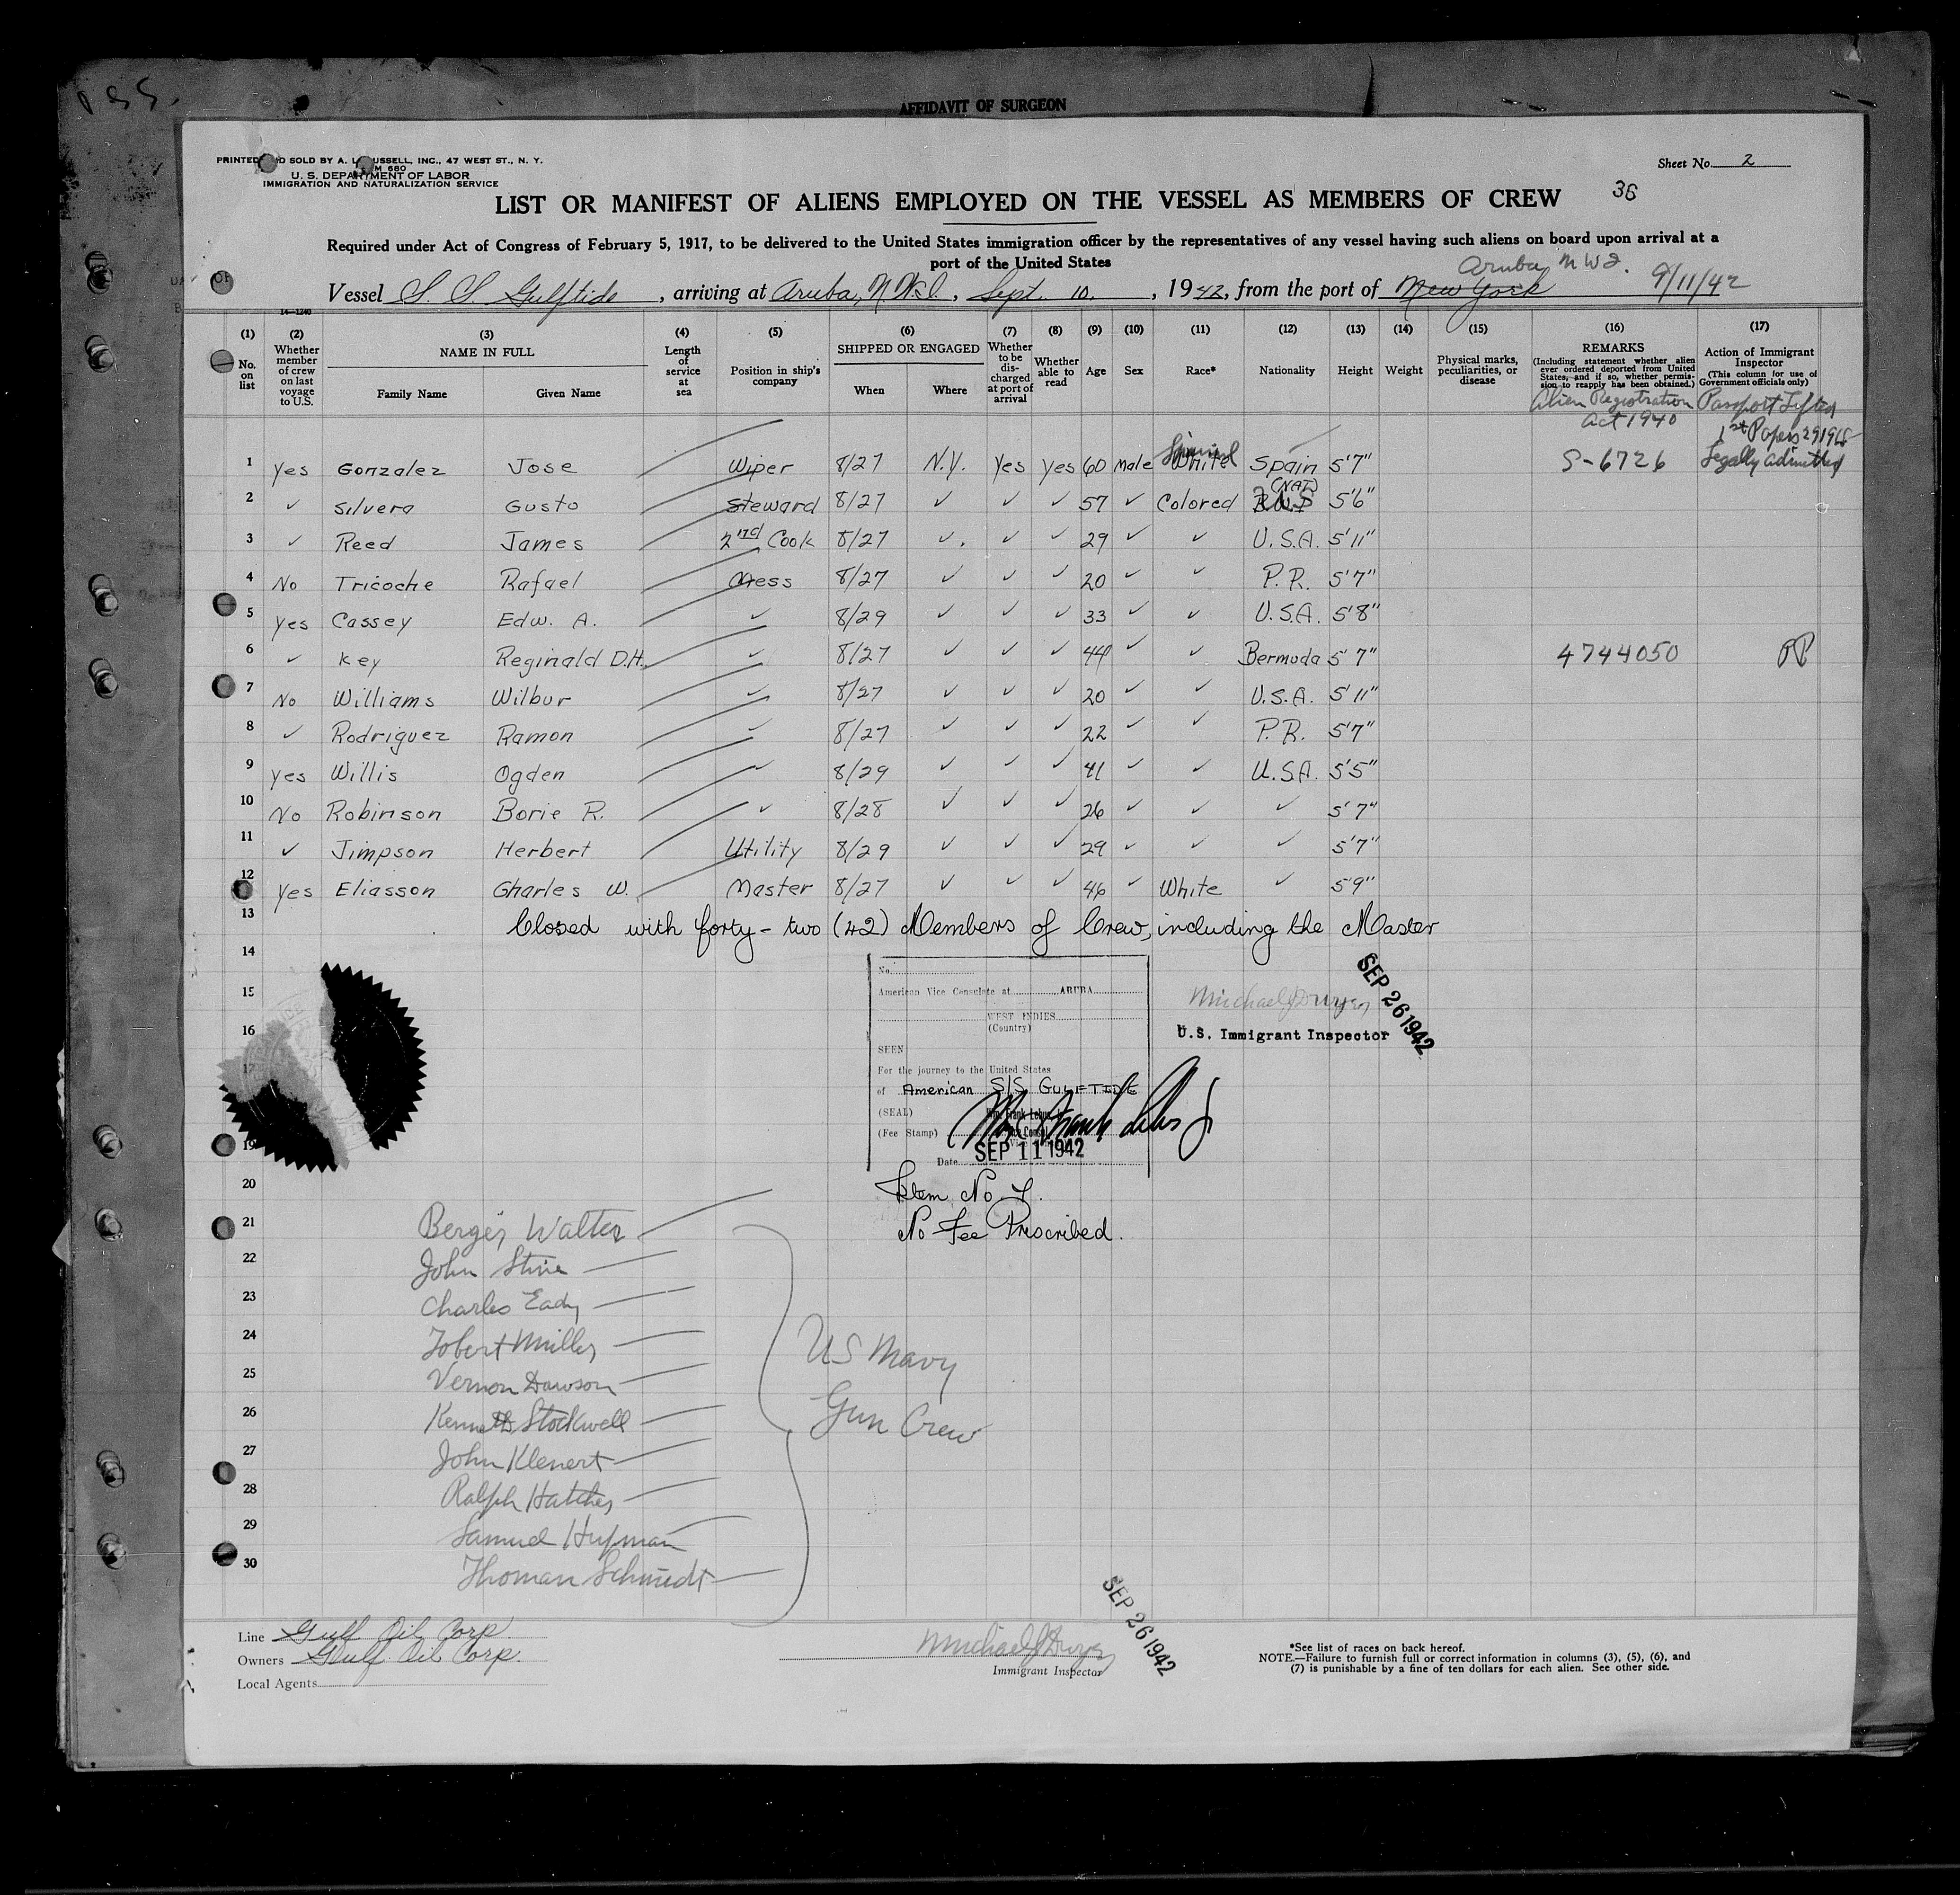 AFFIDAVIT OF SURGEON
U. S. DEPARTMENT OF LABOR
IMMIGRATION AND NATURALIZATION SERVICE
Sheet No. 2
36
LIST OR MANIFEST OF ALIENS EMPLOYED ON THE VESSEL AS MEMBERS OF CREW
Required under Act of Congress of February 5, 1917, to be delivered to the United States immigration officer by the representatives of any vessel having such aliens on board upon arrival at a
port of the United States
Aruba, N W I. 9/11/42
Vessel S. S. Gulftide, arriving at Aruba, N.W.I., Sept. 10, 1942, from the port of New York
14—1240
(1) (2) (3) (4) (5) (6) (7) (8) (9) (10) (11) (12) (13) (14) (15) (16) (17)
No. on list
Whether member of crew on last voyage to U.S.
NAME IN FULL
Family Name Given Name
Length of service at sea
Position in ship's company
SHIPPED OR ENGAGED
When Where
Whether to be discharged at port of arrival
Whether able to read
Age Sex Race* Nationality Height Weight
Physical marks, peculiarities, or disease
REMARKS
(Including statement whether alien ever ordered deported from United States, and if so, whether permission to reapply has been obtained.)
Action of Immigrant Inspector
(This column for use of Government officials only)
Alien Registration Act 1940
Passport Lifted
1st Papers
1 Yes Gonzalez Jose Wiper 8/27 N.Y. Yes Yes 60 Male White Spain 5'7" S-6726 Legally admitted
2 ✓ Silvera Gusto Steward 8/27 ✓ ✓ ✓ 57 ✓ Colored (NAT) 5'6"
3 ✓ Reed James 2nd Cook 8/27 ✓ ✓ ✓ 29 ✓ ✓ U.S.A. 5'11"
4 No Tricoche Rafael Mess 8/27 ✓ ✓ ✓ 20 ✓ ✓ P.R. 5'7"
5 Yes Cassey Edw. A. ✓ 8/29 ✓ ✓ ✓ 33 ✓ ✓ U.S.A. 5'8"
6 ✓ Key Reginald D.H. ✓ 8/27 ✓ ✓ ✓ 44 ✓ ✓ Bermuda 5'7" 4744050 PP
7 No Williams Wilbur ✓ 8/27 ✓ ✓ ✓ 20 ✓ ✓ U.S.A. 5'11"
8 ✓ Rodriguez Ramon ✓ 8/27 ✓ ✓ ✓ 22 ✓ ✓ P.R. 5'7"
9 Yes Willis Ogden ✓ 8/29 ✓ ✓ ✓ 41 ✓ ✓ U.S.A. 5'5"
10 No Robinson Borie R. ✓ 8/28 ✓ ✓ ✓ 26 ✓ ✓ ✓ 5'7"
11 ✓ Jimpson Herbert Utility 8/29 ✓ ✓ ✓ 29 ✓ ✓ ✓ 5'7"
12 Yes Eliasson Charles W. Master 8/27 ✓ ✓ ✓ 46 ✓ White ✓ 5'9"
13 Closed with forty-two (42) Members of Crew, including the Master
14
15
16
17
19
20
No.
American Vice Consulate at ARUBA
WEST INDIES
(Country)
SEEN
For the journey to the United States
of American S/S GULFTIDE
(SEAL)
(Fee Stamp)
Date SEP 11 1942
Item No 7.
No Fee Prescribed.
SEP 26 1942
Michael J Dwyer
U.S. Immigrant Inspector
21 Berger Walter
22 John Stine
23 Charles Eady
24 Tobert Miller
25 Vernon Dawson
26 Kenneth Stockwell
27 John Klenert
28 Ralph Hatcher
29 Samuel Hufman
30 Thoman Schmidt
US Navy
Gun Crew
Line Gulf Oil Corp.
Owners Gulf Oil Corp.
Local Agents
Michael J Dwyer
Immigrant Inspector
SEP 26 1942
*See list of races on back hereof.
NOTE.—Failure to furnish full or correct information in columns (3), (5), (6), and
(7) is punishable by a fine of ten dollars for each alien. See other side.